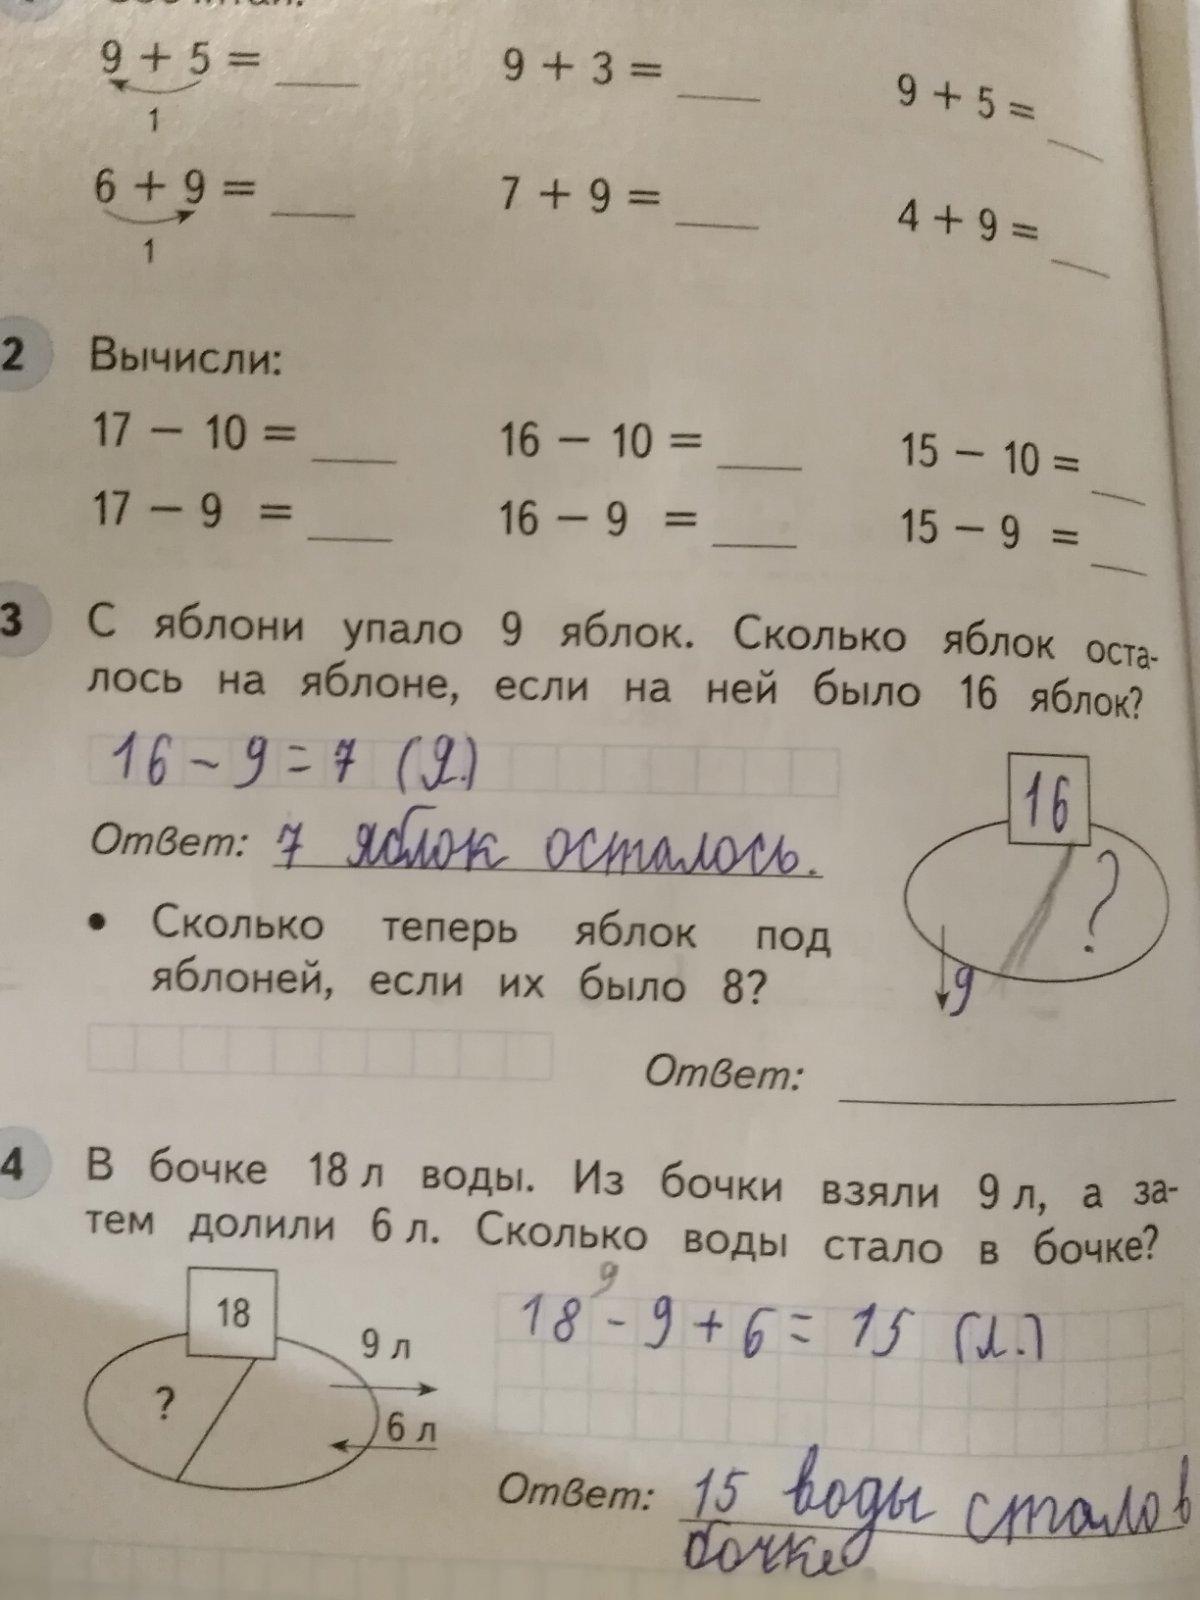 9 + 5 = ___ 9 + 3 = ___ 9 + 5 = ___
1
6 + 9 = ___ 7 + 9 = ___ 4 + 9 = ___
1
2 Вычисли:
17 − 10 = ___ 16 − 10 = ___ 15 − 10 = ___
17 − 9 = ___ 16 − 9 = ___ 15 − 9 = ___
3 С яблони упало 9 яблок. Сколько яблок оста-
лось на яблоне, если на ней было 16 яблок?
16 - 9 = 7 (я.)
16
Ответ: 7 яблок осталось.
?
9
• Сколько теперь яблок под
яблоней, если их было 8?
Ответ: ___
4 В бочке 18 л воды. Из бочки взяли 9 л, а за-
тем долили 6 л. Сколько воды стало в бочке?
18
9 л
?
6 л
9
18 - 9 + 6 = 15 (л.)
Ответ: 15 воды стало в
бочке